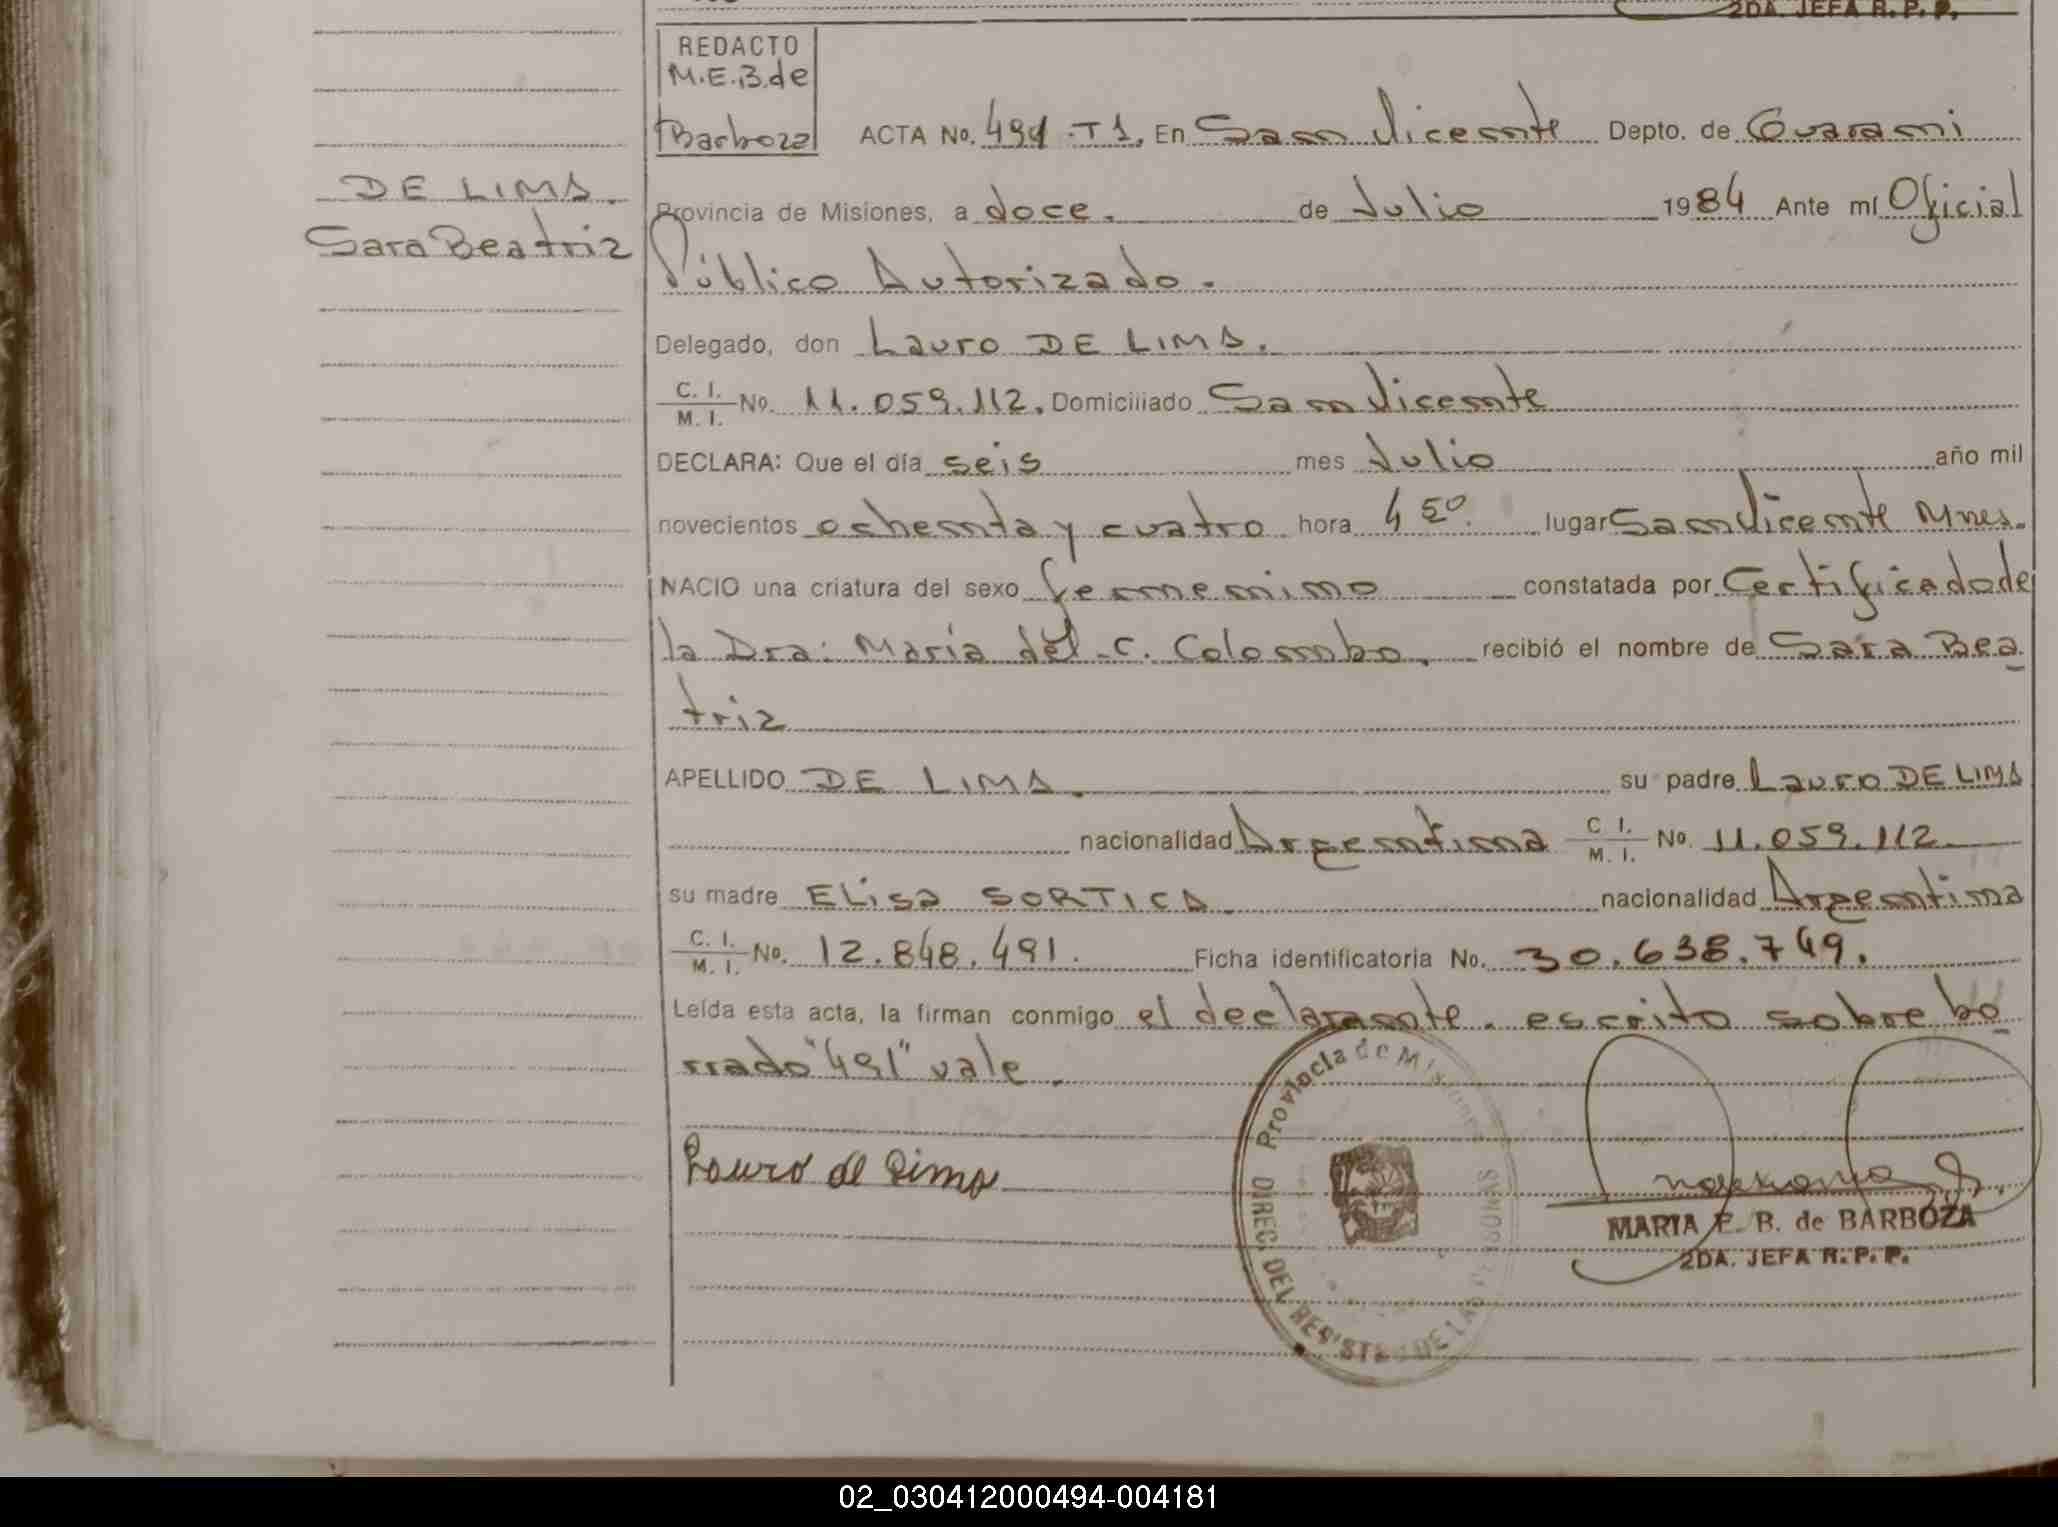 2DA. JEFA R. P. P.
REDACTO
M.E.B. de
Barboza
ACTA No. 491 -T1. En San Vicente Depto. de Guarani
DE LIMA.
Sara Beatriz
Provincia de Misiones, a doce. de Julio 1984 Ante mí Oficial
Público Autorizado.
Delegado, don Lauro DE LIMA.
C. I.
M. I. No. 11.059.112. Domiciliado San Vicente
DECLARA: Que el día seis mes Julio año mil
novecientos ochenta y cuatro hora 4 50. lugar San Vicente Mnes.
NACIO una criatura del sexo femenino constatada por Certificado de
la Dra: María del C. Colombo, recibió el nombre de Sara Bea
triz
APELLIDO DE LIMA. su padre Lauro DE LIMA
nacionalidad Argentina C I.
M. I. No. 11.059.112
su madre ELisa SORTICA. nacionalidad Argentina
C. I.
M. I. No. 12.848.491. Ficha identificatoria No. 30.638.749.
Leída esta acta, la firman conmigo el declarante. escrito sobre bo
rrado "491" vale.
Provincia de Misiones
DIREC. DEL REGIST DE LAS PERSONAS
Lauro de Lima
MARIA E. B. de BARBOZA
2DA. JEFA R. P. P.
02_030412000494-004181